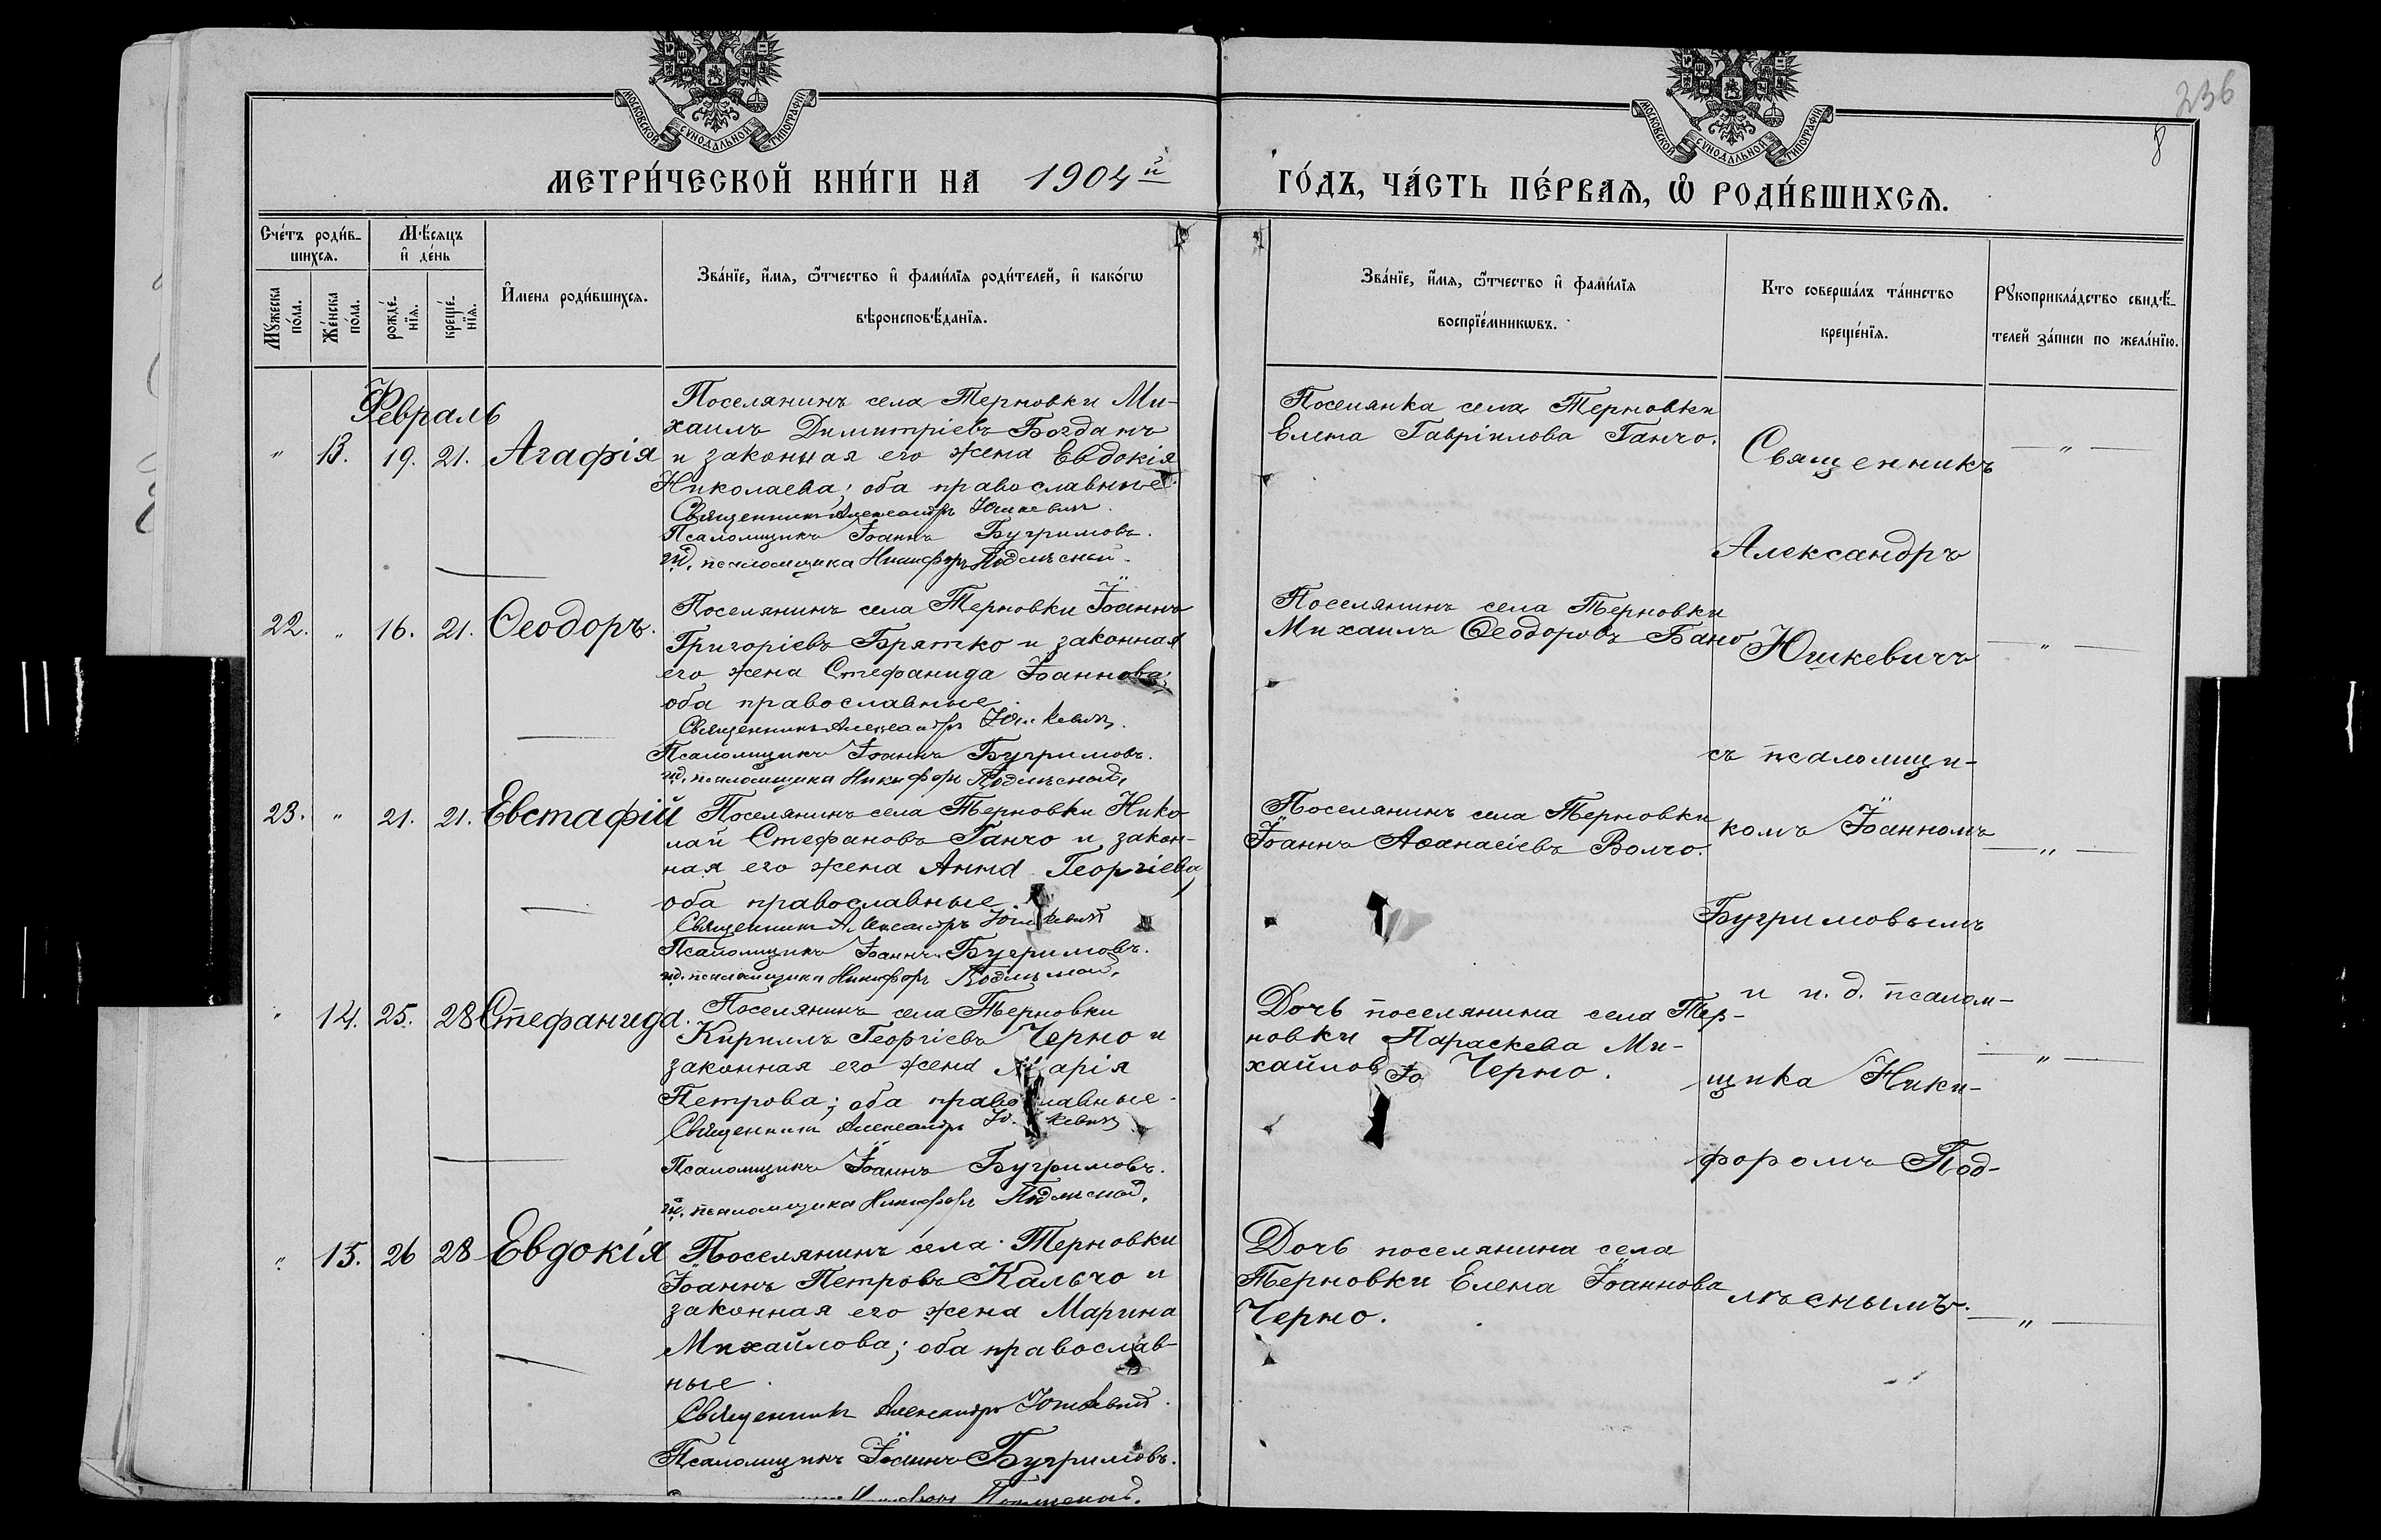 236
8
МОСКОВСКОЙ СѴНОДАЛЬНОЙ ТИПОГРАФІИ
МОСКОВСКОЙ СѴНОДАЛЬНОЙ ТИПОГРАФІИ
МЕТРИ́ЧЕСКОЙ КНИ́ГИ НА 1904й
ГО́ДЪ, ЧА́СТЬ ПЕ́РВАѦ, Ѡ҆ РОДИ́ВШИХСѦ.
Сче́тъ роди́в-
шихсѧ.
Мꙋ́жеска по́ла.
Же́нска по́ла.
Мѣ́сѧцъ
и҆ де́нь
рожде́-
нїѧ.
креще́-
нїѧ.
И҆мена роди́вшихсѧ.
Зва́нїе, и҆́мѧ, ѻ҆́тчество и҆ фами́лїѧ роди́телей, и҆ како́гѡ
вѣроисповѣ́данїѧ.
Зва́нїе, и҆́мѧ, ѻ҆́тчество и҆ фами́лїѧ
воспрїе́мникѡвъ.
Кто соверша́лъ та́инство
креще́нїѧ.
Рꙋкоприкла́дство свидѣ́-
телей за́писи по жела́нїю.
Февраль
" 13. 19. 21. Агафія
Поселянинъ села Терновки Ми-
хаилъ Димитріевъ Богданъ
и законная его жена Евдокія
Николаева; оба православные.
Священникъ Александръ Юшкевичъ.
Псаломщикъ Іоаннъ Бугримовъ.
и.д. псаломщика Никифоръ Подлѣсный.
Поселянка села Терновки
Елена Гавріилова Ганчо.
22. " 16. 21. Ѳеодоръ.
Поселянинъ села Терновки Іоаннъ
Григоріевъ Брятко и законная
его жена Стефанида Іоаннова;
оба православные.
Священникъ Александръ Юшкевичъ.
Псаломщикъ Іоаннъ Бугримовъ.
и.д. псаломщика Никифоръ Подлѣсный.
Поселянинъ села Терновки
Михаилъ Ѳеодоровъ Бано
23. " 21. 21. Евстафій
Поселянинъ села Терновки Нико
лай Стефановъ Ганчо и закон-
ная его жена Анна Георгіева,
оба православные.
Священникъ Александръ Юшкевичъ
Псаломщикъ Іоаннъ Бугримовъ.
и.д. псаломщика Никифоръ Подлѣсный.
Поселянинъ села Терновки
Іоаннъ Аѳанасіевъ Волчо.
" 14. 25. 28 Стефанида.
Поселянинъ села Терновки
Кириллъ Георгіевъ Черно и
законная его жена Марія
Петрова; оба православные.
Священникъ Александръ Юшкевичъ
Псаломщикъ Іоаннъ Бугримовъ.
и.д. псаломщика Никифоръ Подлѣсный.
Дочь поселянина села Тер-
новки Параскева Ми-
хайлова Черно.
" 15. 26 28 Евдокія
Поселянинъ села Терновки
Іоаннъ Петровъ Кальчо и
законная его жена Марина
Михайлова; оба православ-
ные.
Священникъ Александръ Юшкевичъ.
Псаломщикъ Іоаннъ Бугримовъ.
Никифоръ Подлѣсный.
Дочь поселянина села
Терновки Елена Іоаннова
Черно.
Священникъ
Александръ
Юшкевичъ
съ псаломщи-
комъ Іоанномъ
Бугримовымъ
и и. д. псалом-
щика Ники-
форомъ Под-
лѣснымъ.